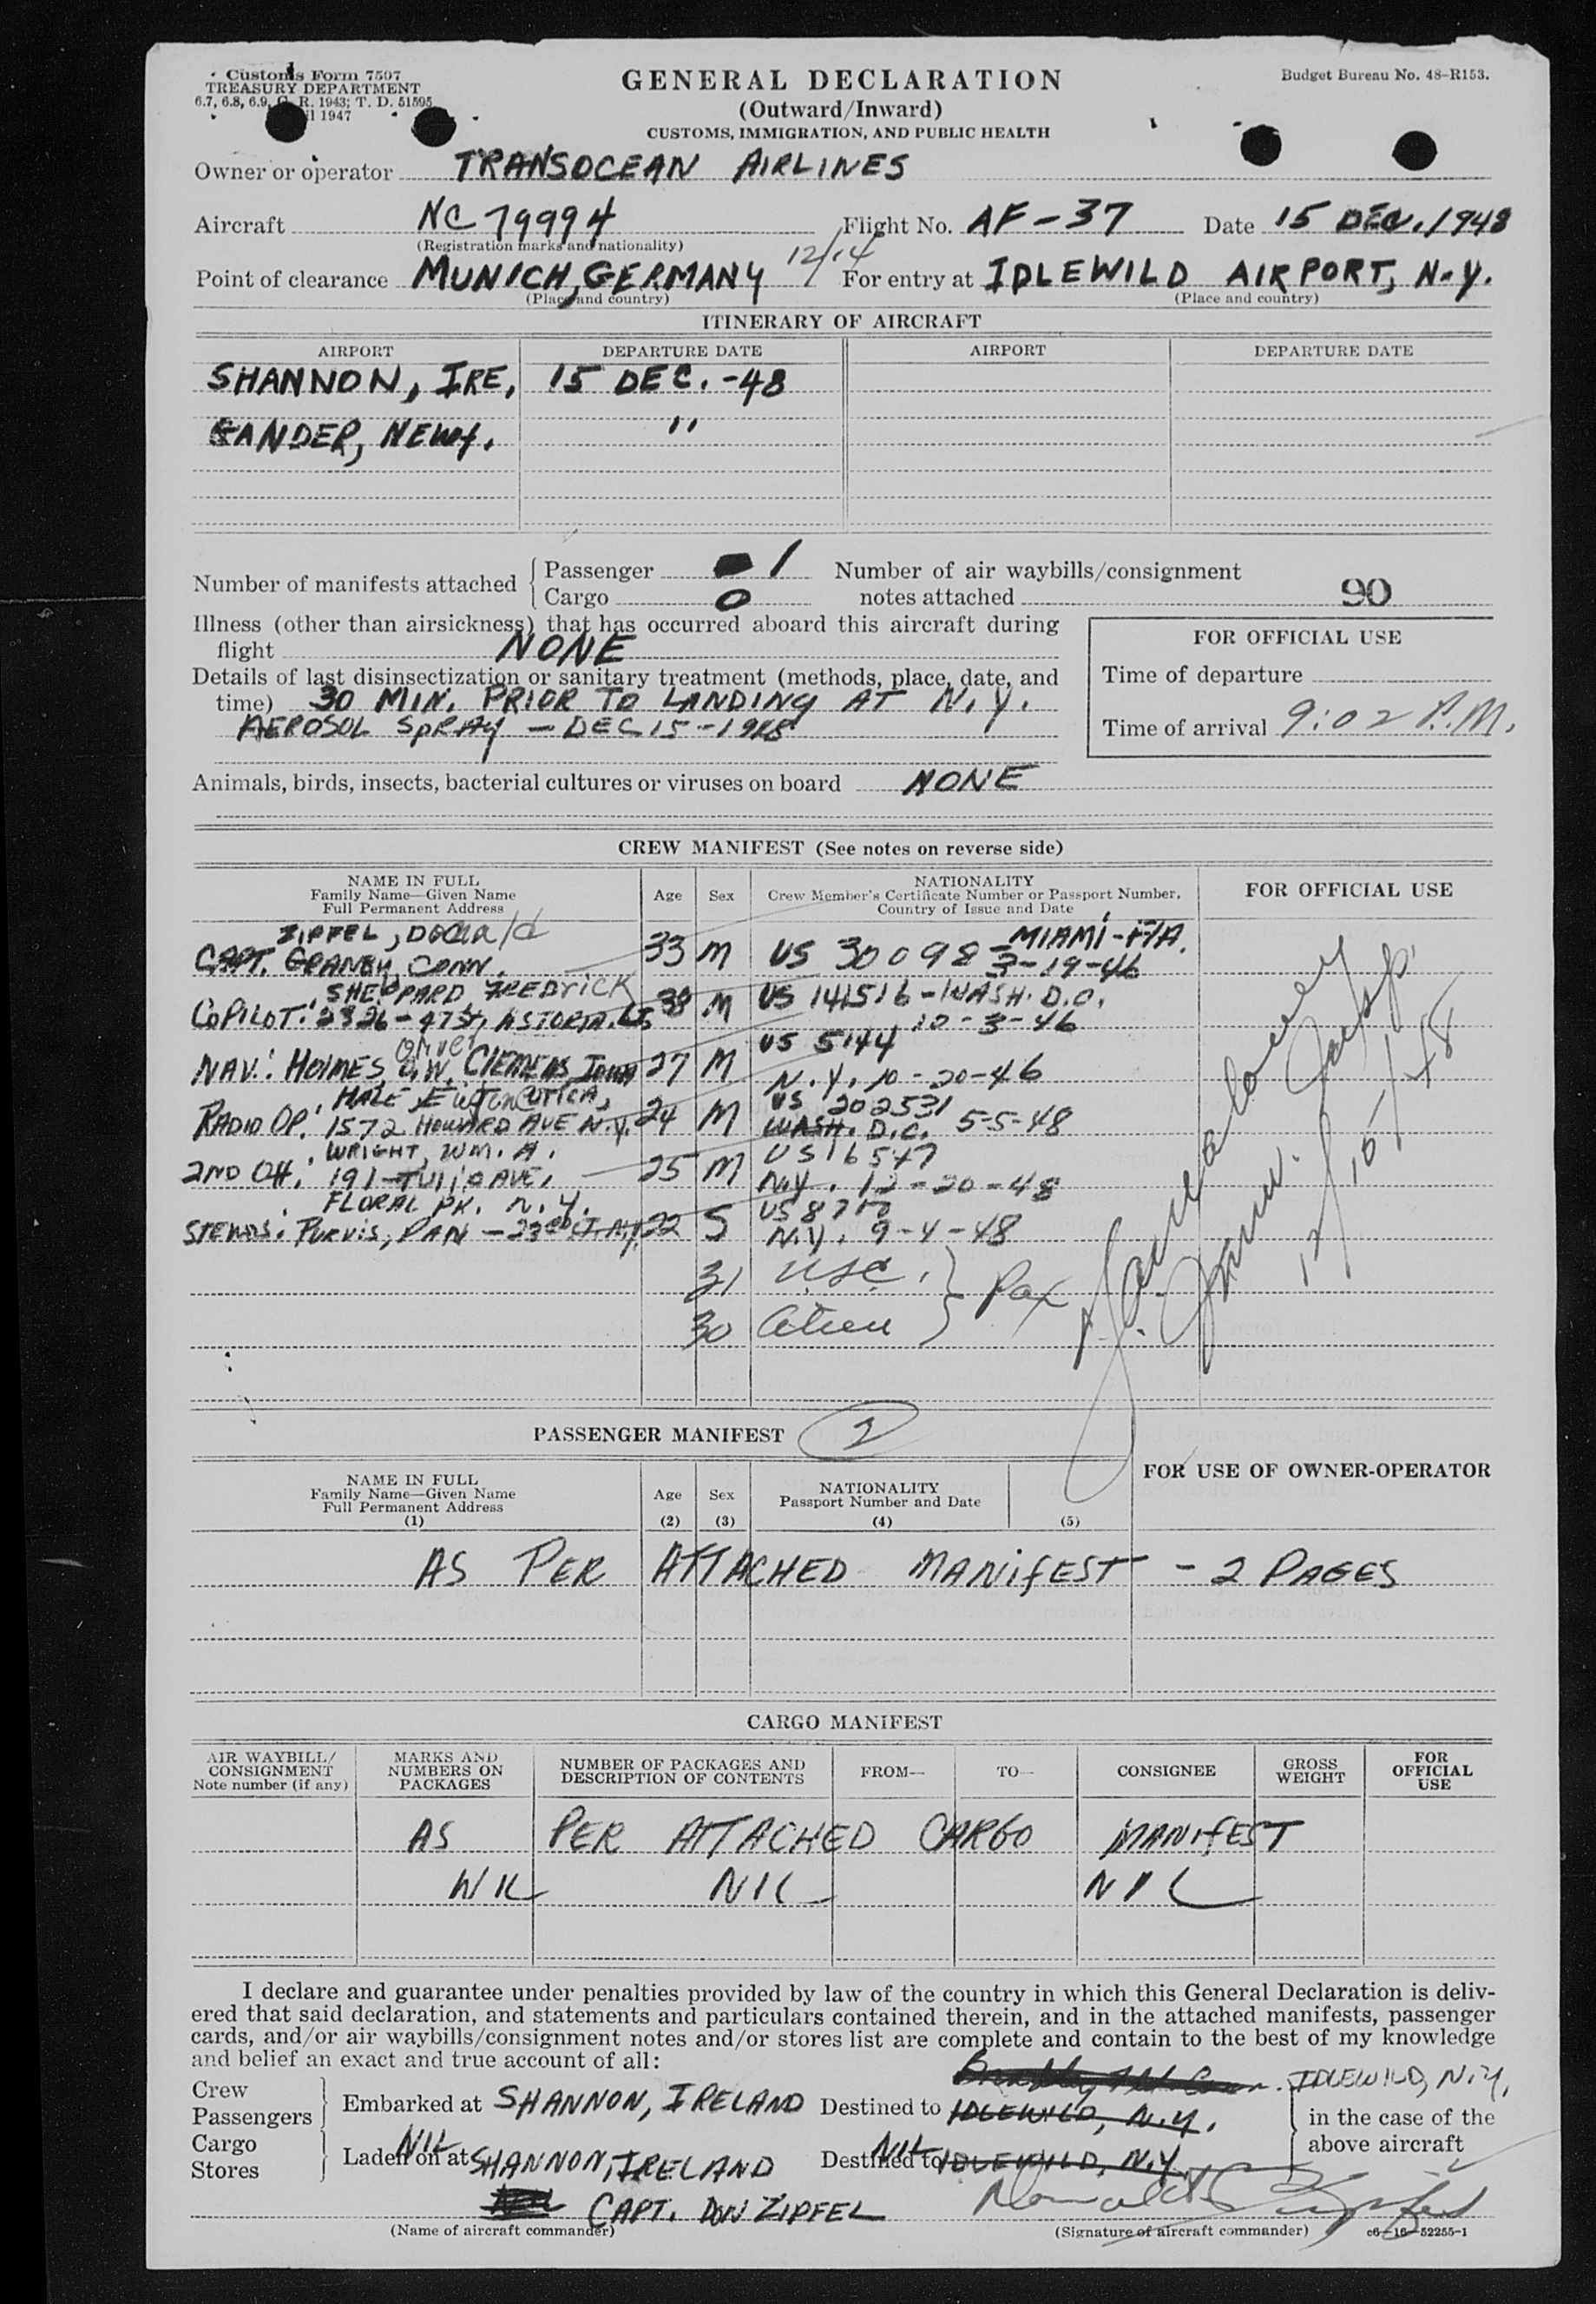 Customs Form 7507
TREASURY DEPARTMENT
6.7, 6.8, 6.9, C. R. 1943; T. D. 51595
1947
GENERAL DECLARATION
(Outward/Inward)
CUSTOMS, IMMIGRATION, AND PUBLIC HEALTH
Budget Bureau No. 48-R153.
Owner or operator TRANSOCEAN AIRLINES
Aircraft NC 79994 Flight No. AF-37 Date 15 DEC. 1948
(Registration marks and nationality)
12/14
Point of clearance MUNICH, GERMANY For entry at IDLEWILD AIRPORT, N.Y.
(Place and country) (Place and country)
ITINERARY OF AIRCRAFT
AIRPORT DEPARTURE DATE AIRPORT DEPARTURE DATE
SHANNON, IRE, 15 DEC. -48
GANDER, NEWf. "
Number of manifests attached { Passenger 1 Number of air waybills/consignment
Cargo 0 notes attached 90
Illness (other than airsickness) that has occurred aboard this aircraft during
flight NONE
Details of last disinsectization or sanitary treatment (methods, place, date, and
time) 30 MIN. PRIOR TO LANDING AT N.Y.
AEROSOL SPRAY - DEC 15 - 1948
FOR OFFICIAL USE
Time of departure
Time of arrival 9:02 P.M.
Animals, birds, insects, bacterial cultures or viruses on board NONE
CREW MANIFEST (See notes on reverse side)
NAME IN FULL
Family Name—Given Name
Full Permanent Address
Age Sex
NATIONALITY
Crew Member's Certificate Number or Passport Number,
Country of Issue and Date
FOR OFFICIAL USE
ZIPFEL, Donald MIAMI-FLA.
CAPT. GRANBY, CONN. 33 M US 30098 3-19-46
SHEPPARD, FREDRICK 38 M US 141516-WASH. D.C.
COPILOT: 2326-47 St, ASTORIA. LI 10-3-46
Oliver US 5144
NAV.: HOLMES, O.W. CLEMENS, IOWA 27 M N.Y. 10-20-46
HALE, Eugene UTICA, US 202531
RADIO OP. 1572 HOWARD AVE N.Y. 24 M WASH. D.C. 5-5-48
WRIGHT, WM. A. US 16547
2ND Off. 191-TULIP AVE, 25 M N.Y. 12-20-48
FLORAL PK. N.Y. US
STEWDS. PURVIS, DAN - 23RD ST. N.Y. 22 S N.Y. 9-4-48
31 USC. } Pax
30 Alien
12/15/48
PASSENGER MANIFEST 2
NAME IN FULL
Family Name—Given Name
Full Permanent Address
(1)
Age
(2)
Sex
(3)
NATIONALITY
Passport Number and Date
(4) (5)
FOR USE OF OWNER-OPERATOR
AS PER ATTACHED MANIFEST - 2 PAGES
CARGO MANIFEST
AIR WAYBILL/
CONSIGNMENT
Note number (if any)
MARKS AND
NUMBERS ON
PACKAGES
NUMBER OF PACKAGES AND
DESCRIPTION OF CONTENTS
FROM— TO— CONSIGNEE
GROSS
WEIGHT
FOR
OFFICIAL
USE
AS PER ATTACHED CARGO MANIFEST
NIL NIL NIL
I declare and guarantee under penalties provided by law of the country in which this General Declaration is deliv-
ered that said declaration, and statements and particulars contained therein, and in the attached manifests, passenger
cards, and/or air waybills/consignment notes and/or stores list are complete and contain to the best of my knowledge
and belief an exact and true account of all:
IDLEWILD, N.Y.
Crew
Passengers } Embarked at SHANNON, IRELAND Destined to IDLEWILD, N.Y. in the case of the
Cargo
Stores } Laden on at NIL SHANNON, IRELAND Destined to NIL IDLEWILD, N.Y. above aircraft
CAPT. DON ZIPFEL Donald Zipfel
(Name of aircraft commander) (Signature of aircraft commander) c6—16—52255-1